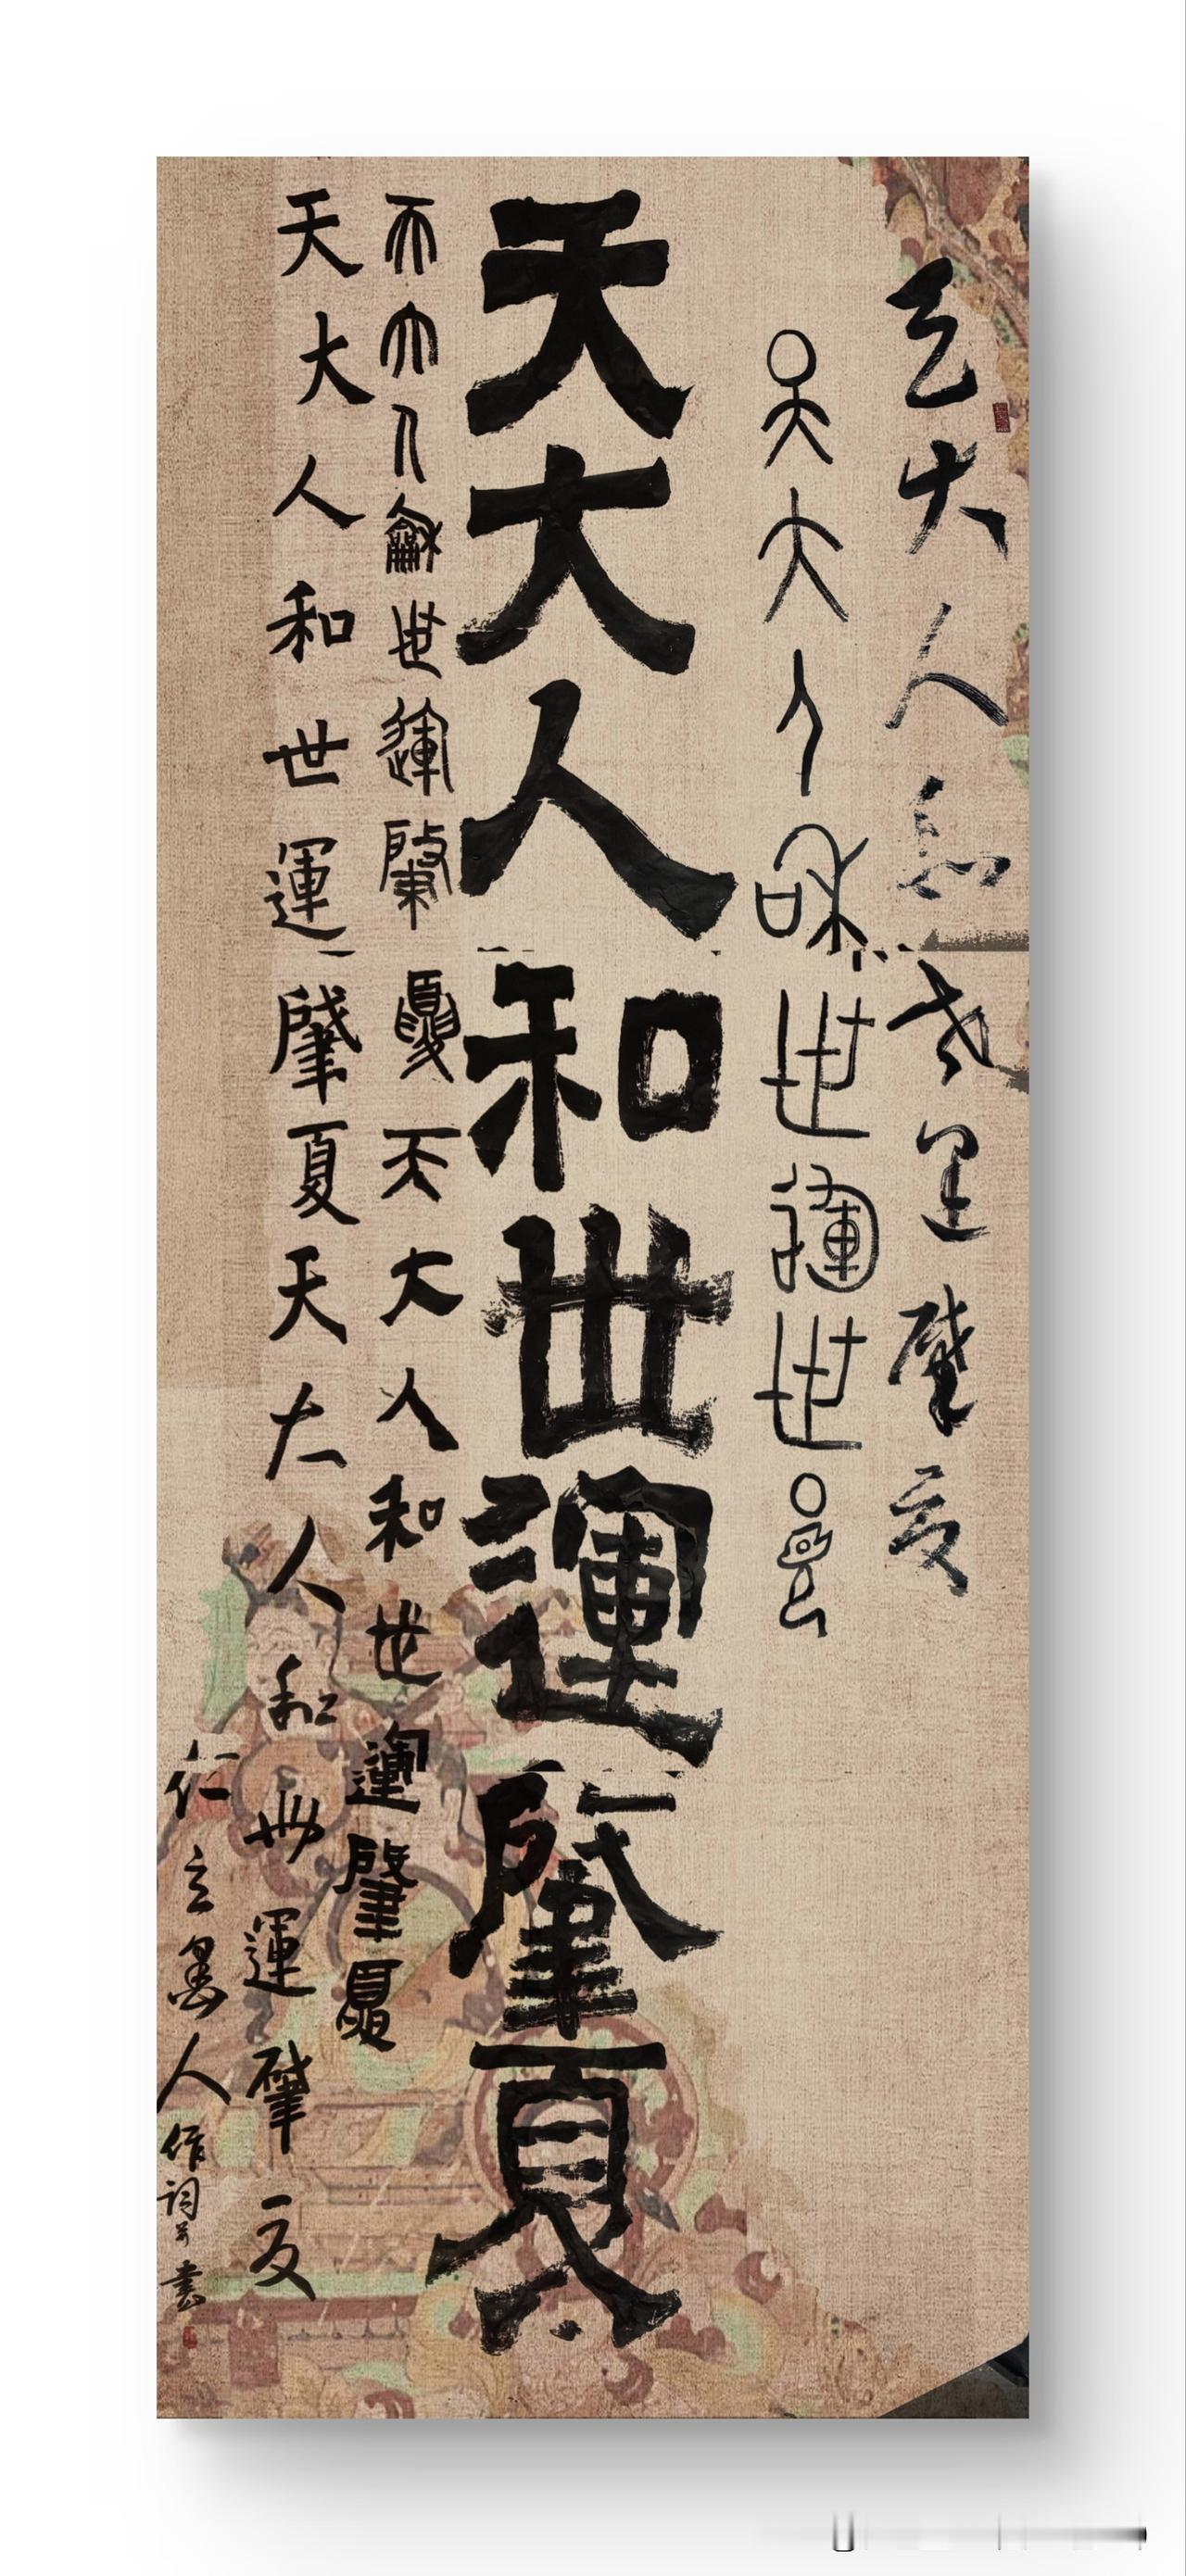 天大人和世運肇夏
天大人和世運世夏
天大人和世運肇夏
天大人龢世運肇夏天大人和世運肇夏
天大人和世運肇夏天大人和世運肇夏
仁立人作詞并書